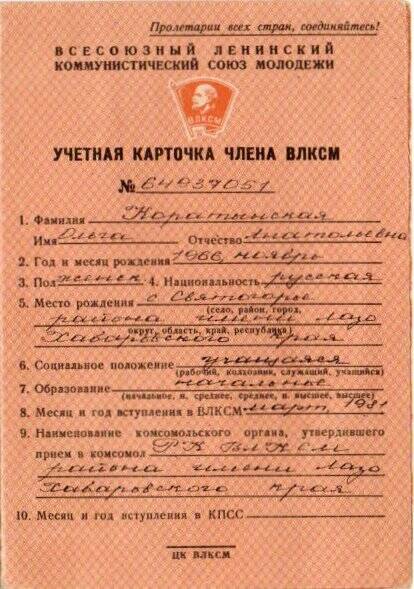 Пролетарии всех стран, соединяйтесь!
ВСЕСОЮЗНЫЙ ЛЕНИНСКИЙ
КОММУНИСТИЧЕСКИЙ СОЮЗ МОЛОДЕЖИ
ВЛКСМ
УЧЕТНАЯ КАРТОЧКА ЧЛЕНА ВЛКСМ
№ 64937051
1. Фамилия Каратынская
Имя Ольга Отчество Анатольевна
2. Год и месяц рождения 1966, ноябрь
3. Пол женск 4. Национальность русская
5. Место рождения с Святогорье
(село, район, город,
района имени Лазо
округ, область, край, республика)
Хабаровского края
6. Социальное положение учащаяся
(рабочий, колхозник, служащий, учащийся)
7. Образование начальное
(начальное, н. среднее, среднее, н. высшее, высшее)
8. Месяц и год вступления в ВЛКСМ март, 1981
9. Наименование комсомольского органа, утвердившего
прием в комсомол РК ВЛКСМ
района имени Лазо
Хабаровского края
10. Месяц и год вступления в КПСС
ЦК ВЛКСМ